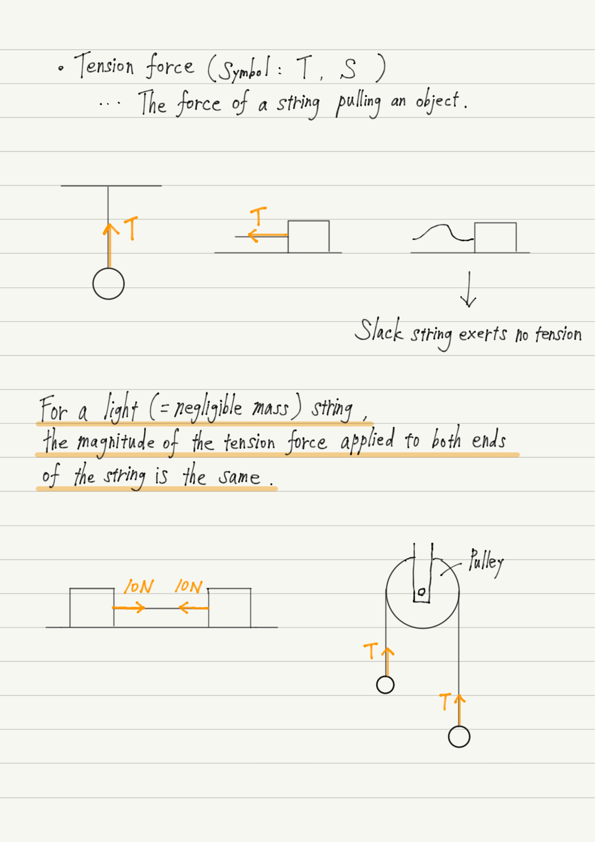 • Tension force (Symbol: T, S)
... The force of a string pulling an object.
T
T
Slack string exerts no tension
For a light (= negligible mass) string,
the magnitude of the tension force applied to both ends
of the string is the same.
10N 10N
Pulley
T
T